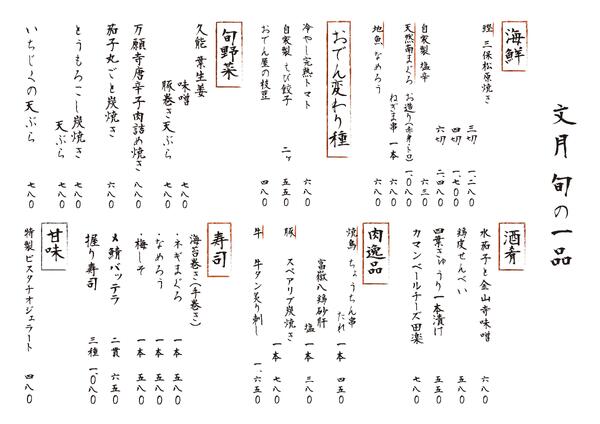 文月 旬の一品
海鮮
鰹 三保松原焼き
三切 一、二八〇
四切 一、七〇〇
六切 二、四八〇
自家製 塩辛 六三〇
天然南まぐろ お造り(赤身・トロ) 一、〇八〇
ねぎま串 一本 六八〇
地魚 なめろう 六八〇
おでん変わり種
冷やし完熟トマト 六八〇
自家製 えび餃子 二ヶ 五五〇
おでん屋の枝豆 四八〇
旬野菜
久能 葉生姜
味噌 七八〇
豚巻き天ぷら 七八〇
万願寺唐辛子肉詰め焼き 八八〇
茄子丸ごと炭焼き 六八〇
とうもろこし炭焼き 七八〇
天ぷら 七八〇
いちじくの天ぷら 七八〇
酒肴
水茄子と金山寺味噌 六八〇
鶏皮せんべい 五八〇
四葉きゅうり一本漬け 五八〇
カマンベールチーズ田楽 七八〇
肉逸品
焼鳥 ちょうちん串 たれ 一本 四五〇
富嶽八鶏砂肝 塩 一本 三八〇
豚 スペアリブ炭焼き 一本 七八〇
牛 牛タン炙り刺し 一、六五〇
寿司
海苔巻き(手巻き)
・ネギまぐろ 一本 五八〇
・なめろう 一本 五八〇
・梅しそ 一本 五八〇
〆鯖バッテラ 二貫 六五〇
握り寿司 三種 一、〇八〇
甘味
特製ピスタチオジェラート 四八〇